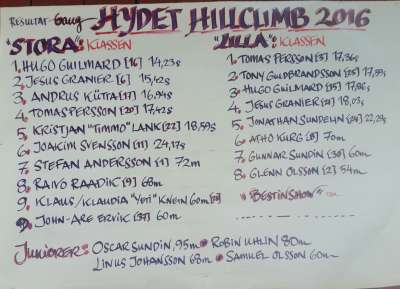 RESULTAT HYDET HILLCLIMB 2016
"STORA": KLASSEN
1. HUGO GUILMARD [16] 14,23s
2. JESUS GRANIER [6] 15,42s
3. ANDRUS KÜTTA [17] 16,94s
4. TOMAS PERSSON [20] 17,42s
5. KRISTJAN "TIMMO" LANK [22] 18,59s
6. JOAKIM SVENSSON [11] 24,17s
7. STEFAN ANDERSSON [1] 72m
8. RAIVO RAADIK [9] 68m
9. KLAUS/KLAUDIA "YETI" KNEIN 60m
JOHN-ARE ERVIK [37] 60m
"LILLA": KLASSEN
1. TOMAS PERSSON [3] 17,36s
2. TONY GULDBRANDSSON [25] 17,59s
3. HUGO GUILMARD [35] 17,86s
4. JESUS GRANIER [21] 18,03s
5. JONATHAN SUNDELIN [24] 22,28s
6. ATHO KURG [8] 70m
7. GUNNAR SUNDIN [30] 60m
8. GLENN OLSSON [2] 54m
"BEST IN SHOW"
JUNIORER: OSCAR SUNDIN, 95m ROBIN UHLIN 80m
LINUS JOHANSSON 68m SAMUEL OLSSON 60m